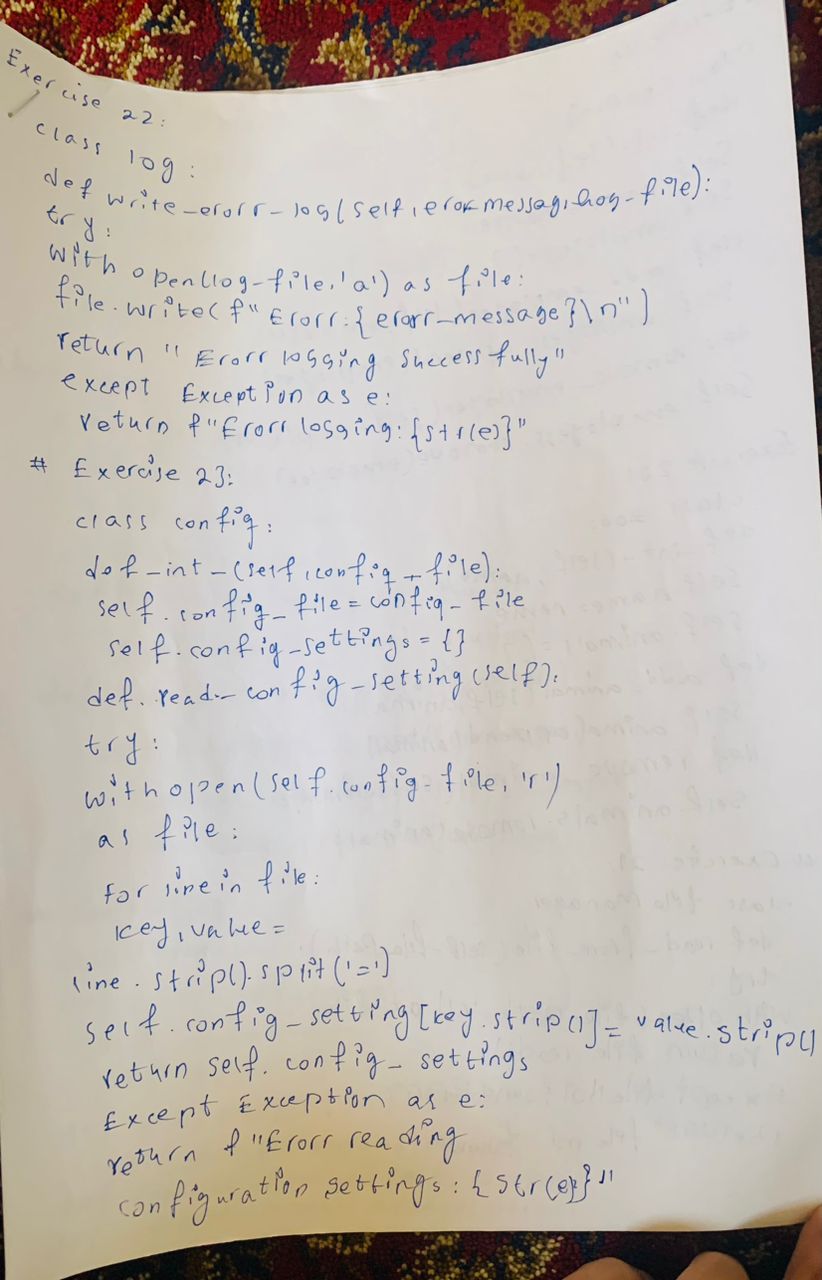 Exercise 22:
class log:
def write-erorr-log(self, eror message, log-file):
try:
with open(log-file, 'a') as file:
file.write(f"Erorr:{erorr-message}\n")
return "Erorr logging Successfully"
except Exception as e:
return f"Erorr logging:{str(e)}"
# Exercise 23:
class config:
def-int-(self, config-file):
self.config-file = config-file
self.config-settings = {}
def. read-config-setting(self):
try:
with open(self.config-file, 'r')
as file:
for line in file:
key, value =
line.strip().split('=')
self.config-setting[key.strip()] = value.strip()
return self.config-settings
Except Exception as e:
return f"Erorr reading
configuration settings: {str(e)}"